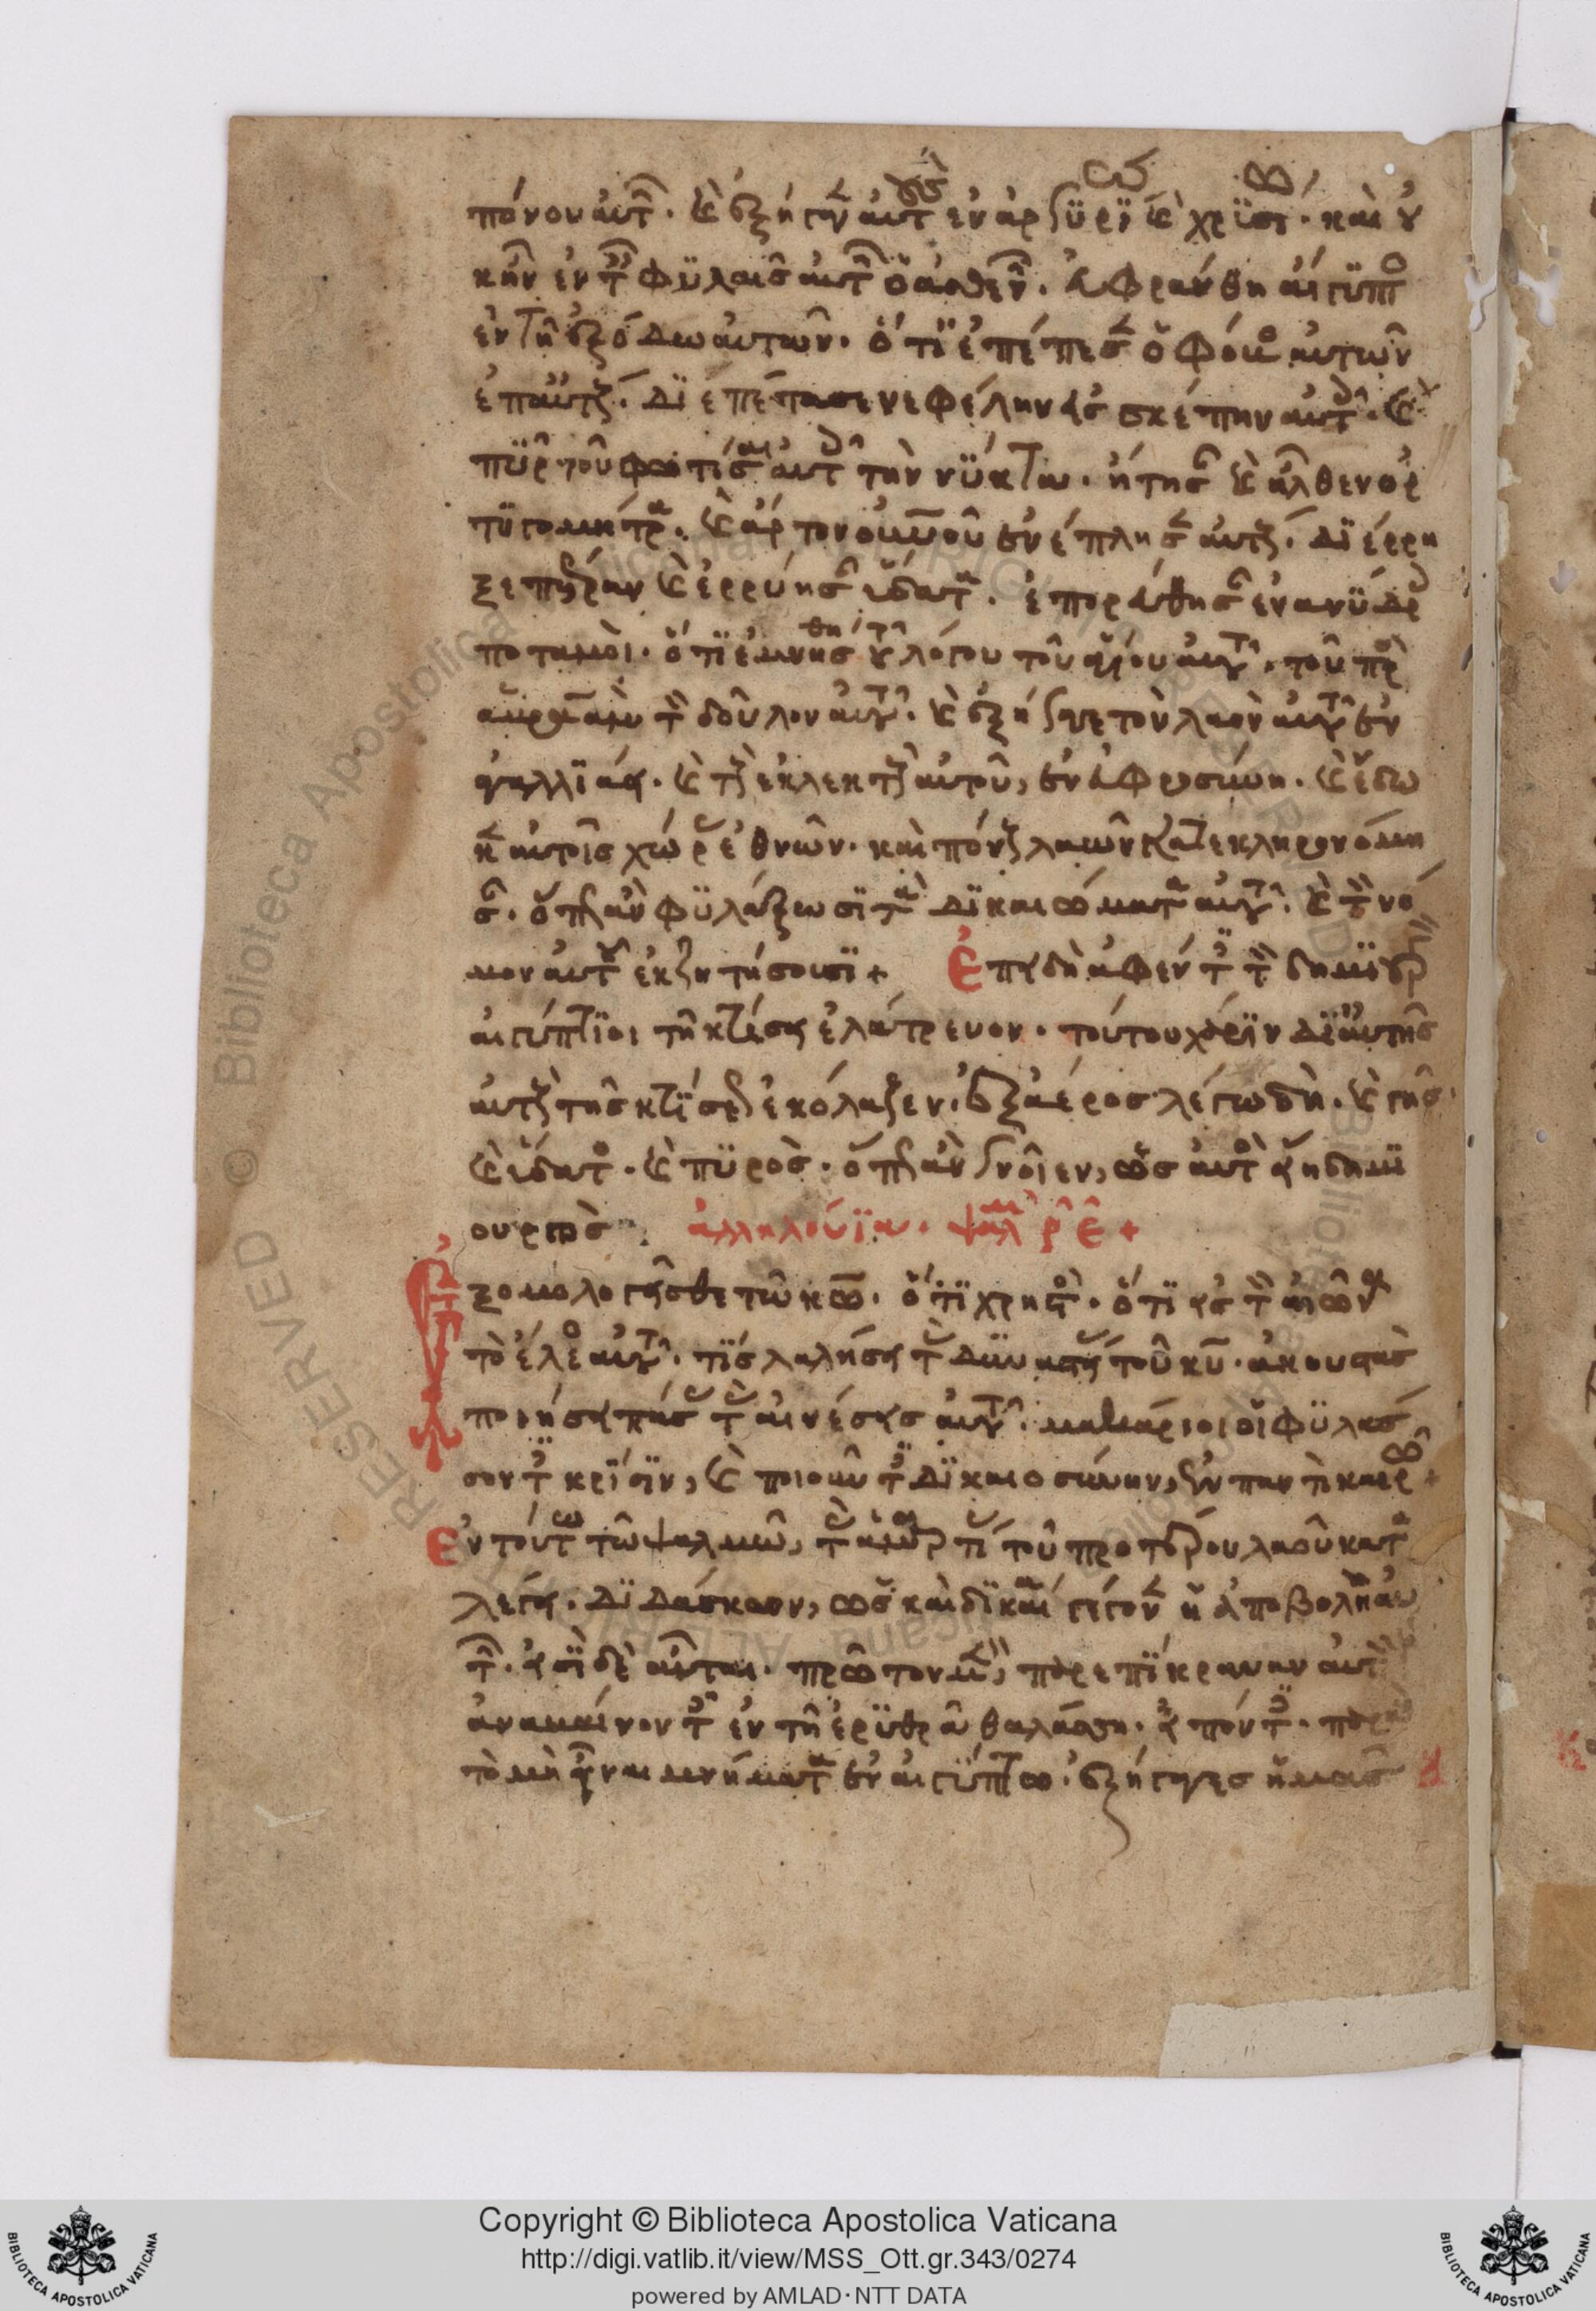 πόνου αὐτῶν. καὶ ἐξήγαγεν αὐτοὺς ἐν ἀργυρίῳ καὶ χρυσίῳ. καὶ οὐκ
ἦν ἐν ταῖς φυλαῖς αὐτῶν ὁ ἀσθενῶν. εὐφράνθη αἴγυπτος
ἐν τῇ ἐξόδῳ αὐτῶν. ὅτι ἐπέπεσεν ὁ φόβος αὐτῶν
ἐπ' αὐτούς. διεπέτασε νεφέλην εἰς σκέπην αὐτοῖς. καὶ
πῦρ τοῦ φωτίσαι αὐτοῖς τὴν νύκτα. ᾔτησαν καὶ ἦλθεν ὀρ
τυγομήτρα. καὶ ἄρτον οὐρανοῦ ἐνέπλησεν αὐτούς. διέρρη
ξε πέτραν καὶ ἐρρύησαν ὕδατα. ἐπορεύθησαν ἐν ἀνύδροις
ποταμοί. ὅτι ἐμνήσθη τοῦ λόγου τοῦ ἁγίου αὐτοῦ. τοῦ πρὸς
ἀβραὰμ τὸν δοῦλον αὐτοῦ. καὶ ἐξήγαγε τὸν λαὸν αὐτοῦ ἐν
ἀγαλλιάσει. καὶ τοὺς ἐκλεκτοὺς αὐτοῦ, ἐν εὐφροσύνῃ. καὶ ἔδω
κεν αὐτοῖς χώρας ἐθνῶν. καὶ πόνους λαῶν κατεκληρονόμη
σαν. ὅπως ἂν φυλάξωσι τὰ δικαιώματα αὐτοῦ. καὶ τὸν νό
μον αὐτοῦ ἐκζητήσουσι +   Ἐπειδὴ ἀφέντες τὸν δημιουργὸν
αἰγύπτιοι τῇ κτίσει ἐλάτρευον. τούτου χάριν δι' αὐτῆς
αὐτοὺς τῆς κτίσεως ἐκόλαζεν. ἐξ ἀέρος λέγω δὴ. καὶ γῆς.
καὶ ὕδατος. καὶ πυρός. ὅπως ἂν γνοῖεν, ὡς αὐτὸς εἴη δημι
ουργός. ἀλληλούϊα. ψαλμὸς ρε +
Ἐξομολογεῖσθε τῷ κω. ὅτι χρηστός. ὅτι εἰς τὸν αἰῶνα
τὸ ἔλεος αὐτοῦ. τίς λαλήσει τὰς δυναστείας τοῦ κυ. ἀκουστὰς
ποιήσει πάσας τὰς αἰνέσεις αὐτοῦ. μακάριοι οἱ φυλάσ
σοντες κρίσιν, καὶ ποιοῦντες δικαιοσύνην, ἐν παντὶ καιρῷ +
Ἐν τούτῳ τῷ ψαλμῷ, τὰς ἁμαρτίας τοῦ προτέρου λαοῦ κατα
λέγει. διδάσκων, ὡς καὶ δικαία γέγονεν ἡ ἀποβολὴ αὐ
τῶν. εἰσὶ δὲ αὗται. πρῶτον μὲν, παρεπίκραναν αὐτὸν
ἀναβαίνοντες ἐν τῇ ἐρυθρᾷ θαλάσσῃ. εἰπόντες. παρὰ
τὸ μὴ εἶναι μνήματα ἐν αἰγύπτῳ. ἐξήγαγες ἡμᾶς
Copyright © Biblioteca Apostolica Vaticana
http://digi.vatlib.it/view/MSS_Ott.gr.343/0274
powered by AMLAD·NTT DATA